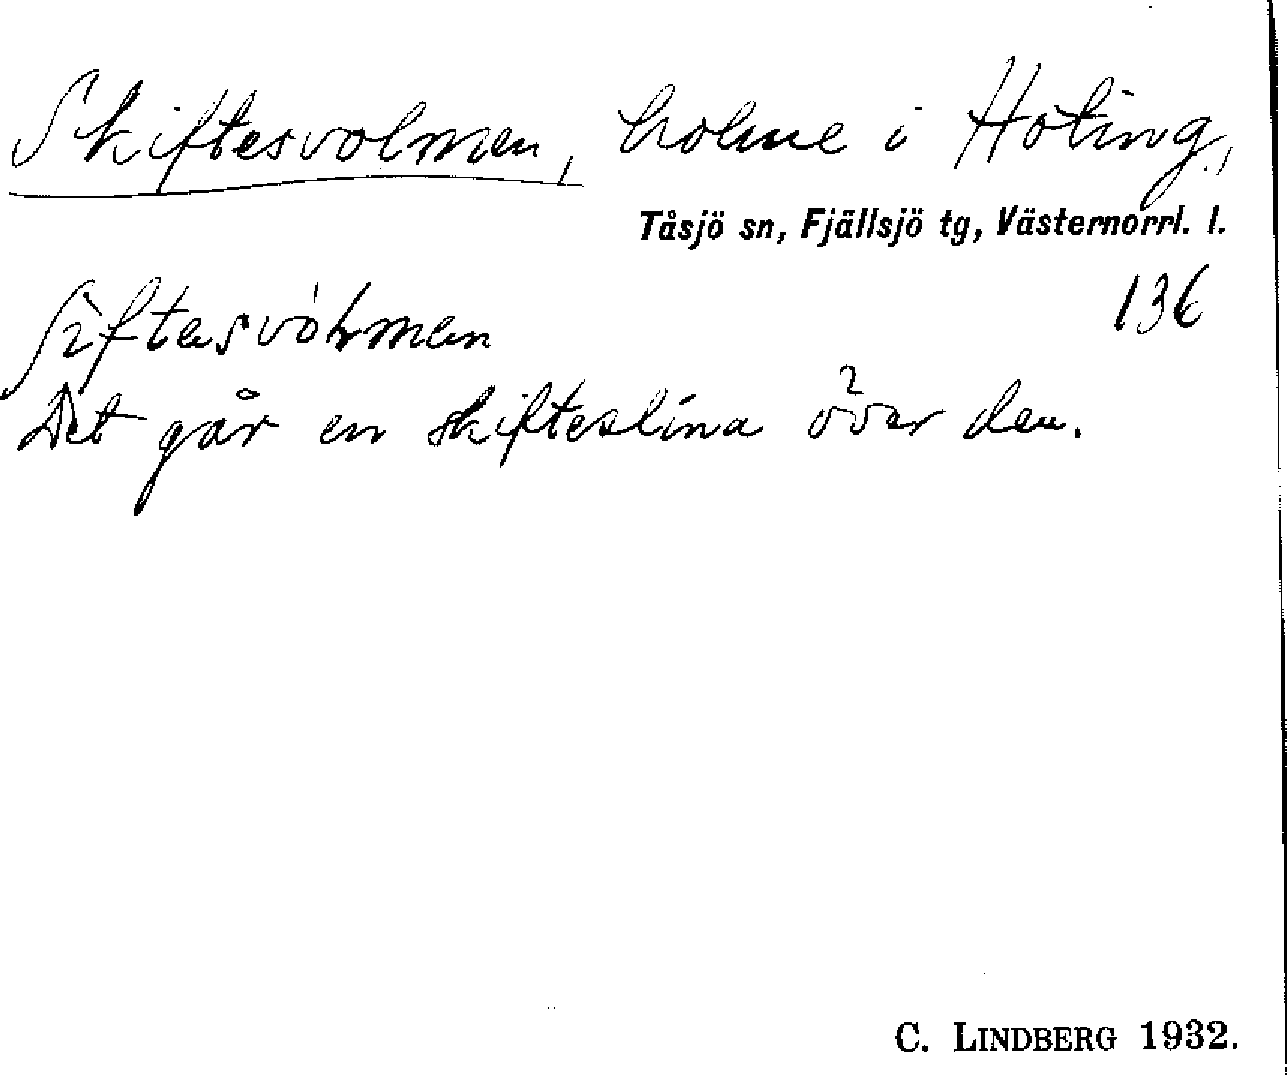 Skiftesvolmen, holme i Hoting,
Tåsjö sn, Fjällsjö tg, Västernorrl. l.
136
Det går en skifteslina över den.
C. LINDBERG 1932.